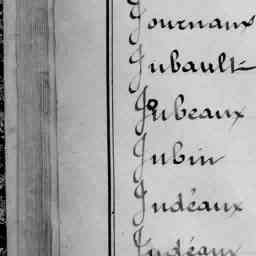 Journaux
Jubault
Jubeaux
Jubin
Judéaux
Judéaux